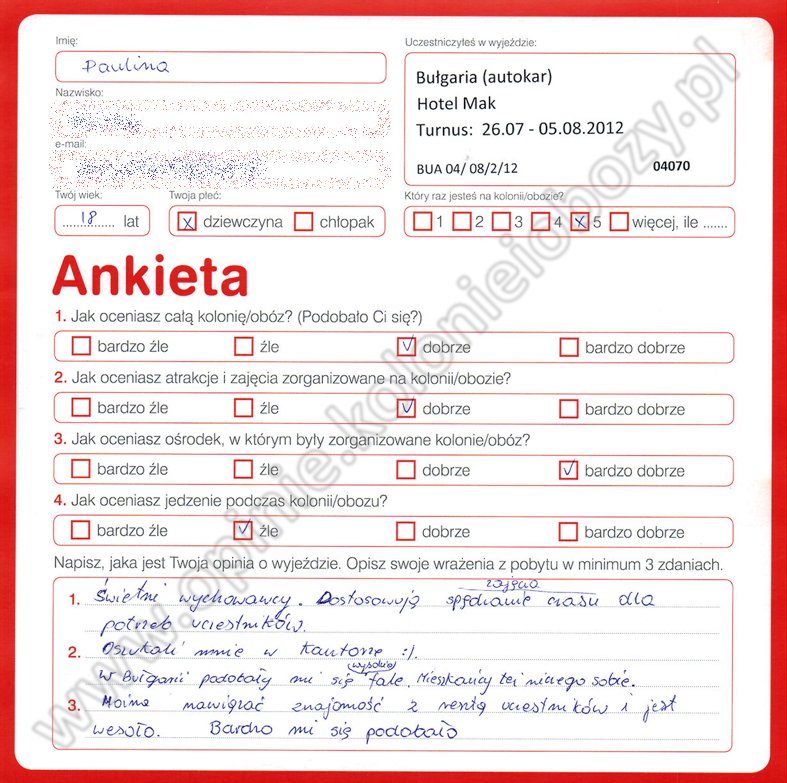 Imię:
Paulina
Uczestniczyłeś w wyjeździe:
Bułgaria (autokar)
Hotel Mak
Turnus: 26.07 - 05.08.2012
BUA 04/ 08/2/12 04070
Nazwisko:
e-mail:
Twój wiek:
18 lat
Twoja płeć:
x dziewczyna chłopak
Który raz jesteś na kolonii/obozie?
1 2 3 4 x 5 więcej, ile .......
Ankieta
1. Jak oceniasz całą kolonię/obóz? (Podobało Ci się?)
bardzo źle źle v dobrze bardzo dobrze
2. Jak oceniasz atrakcje i zajęcia zorganizowane na kolonii/obozie?
bardzo źle źle v dobrze bardzo dobrze
3. Jak oceniasz ośrodek, w którym były zorganizowane kolonie/obóz?
bardzo źle źle dobrze v bardzo dobrze
4. Jak oceniasz jedzenie podczas kolonii/obozu?
bardzo źle v źle dobrze bardzo dobrze
Napisz, jaka jest Twoja opinia o wyjeździe. Opisz swoje wrażenia z pobytu w minimum 3 zdaniach.
zajęcia
1. Świetni wychowawcy. Dostosowują spędzanie czasu dla
potrzeb uczestników.
2. Oszukali mnie w Kantorze :/.
wysokie
W Bułgarii podobały mi się fale. Mieszkańcy też niczego sobie.
3. Można nawiązać znajomość z resztą uczestników i jest
wesoło. Bardzo mi się podobało
www.opinie.kolonieiobozy.pl